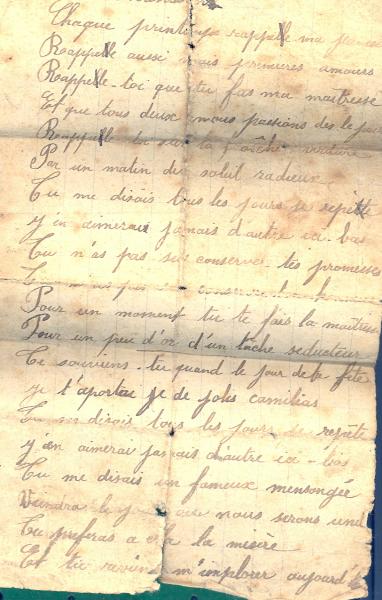 Chaque printemps rappelle ma
Rappelle aussi mais premières amours
Rappelle-toi que tu fas ma maitrese
Et que tous deux nous passions dès le
Rappelle toi sur la fraîche
Par un matin du soleil radieux
Tu me disais tous les jours je repette
j'en aimerai jamais d'autre ici-bas
Tu n'as pas su conserve tes promesses
Tu n'as pas su conserve
Pour un moment tu te fais la maitrese
Pour un peu d'or d'un lâche seducteur
Te souviens-tu quand le jour de ta fête
je t'aporteu je de jolis camélias
Tu me disais tous les jours je repète
j'en aimerai jamais d'autre ici-bas
Tu me disais un fameux mensongée
Viendra le jour que nous serons unu
Tu preferas a cela la misère
Et tu m'implorer aujourd'